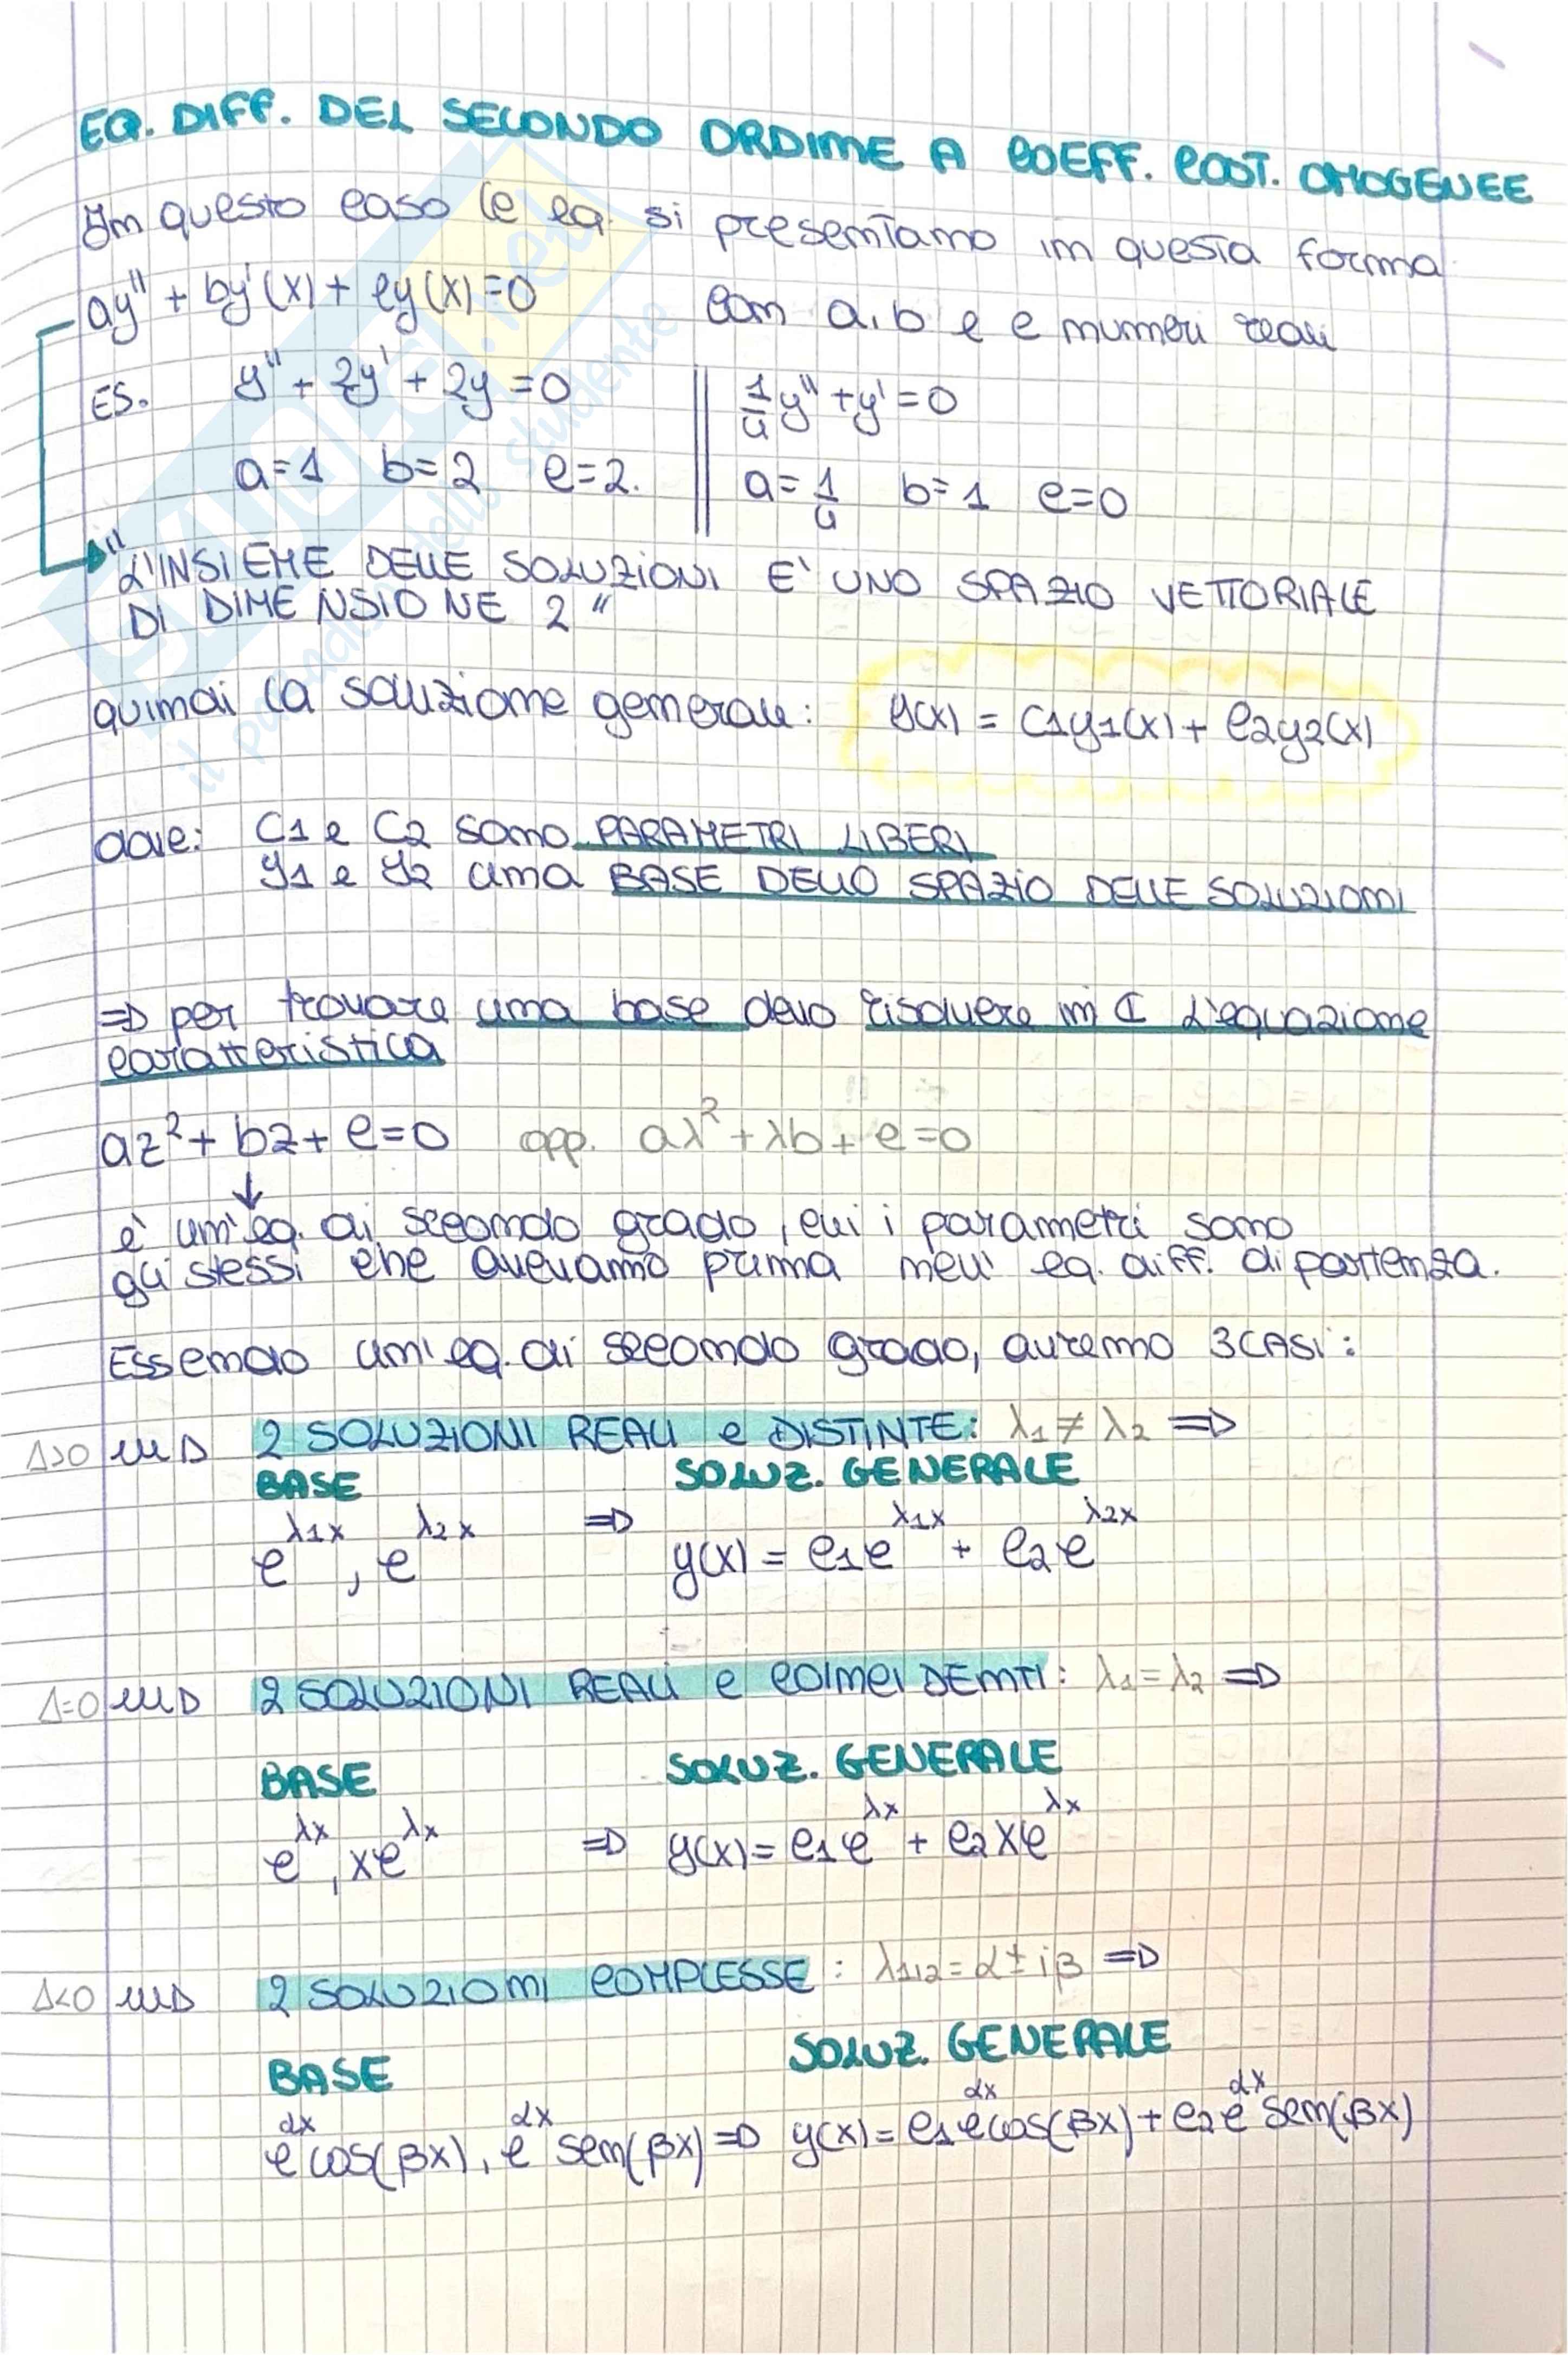 EQ. DIFF. DEL SECONDO ORDINE A COEFF. COST. OMOGENEE
In questo caso le eq. si presentano in questa forma
ay'' + by'(x) + cy(x) = 0 con a, b e c numeri reali
ES. y'' + 2y' + 2y = 0 || 1/4 y'' + y' = 0
a=1 b=2 c=2. || a=1/4 b=1 c=0
"L'INSIEME DELLE SOLUZIONI E' UNO SPAZIO VETTORIALE
DI DIMENSIONE 2"
quindi la soluzione generale: y(x) = C1y1(x) + C2y2(x)
dove: C1 e C2 sono PARAMETRI LIBERI
y1 e y2 una BASE DELLO SPAZIO DELLE SOLUZIONI
=> per trovare una base devo risolvere in ℂ L'equazione
caratteristica
az² + bz + c = 0 opp. aλ² + λb + c = 0
↓
è un'eq. di secondo grado, cui i parametri sono
gli stessi che avevamo prima nell'eq. diff. di partenza.
Essendo un'eq. di secondo grado, avremo 3 CASI:
Δ>0 2 SOLUZIONI REALI e DISTINTE: λ1 ≠ λ2 =>
BASE SOLUZ. GENERALE
e^λ1x, e^λ2x => y(x) = c1e^λ1x + c2e^λ2x
Δ=0 2 SOLUZIONI REALI e COINCIDENTI: λ1 = λ2 =>
BASE SOLUZ. GENERALE
e^λx, xe^λx => y(x) = c1e^λx + c2xe^λx
Δ<0 2 SOLUZIONI COMPLESSE: λ1,2 = α ± iβ =>
BASE SOLUZ. GENERALE
e^αx cos(βx), e^αx sen(βx) => y(x) = c1e^αx cos(βx) + c2e^αx sen(βx)
il paradiso dello studente